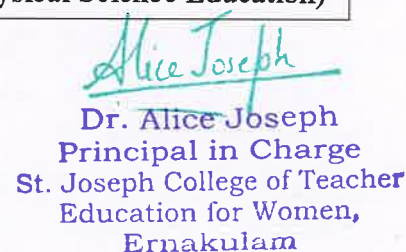 ysical Science Education)
Alice Joseph
Dr. Alice Joseph
Principal in Charge
St. Joseph College of Teacher
Education for Women,
Ernakulam